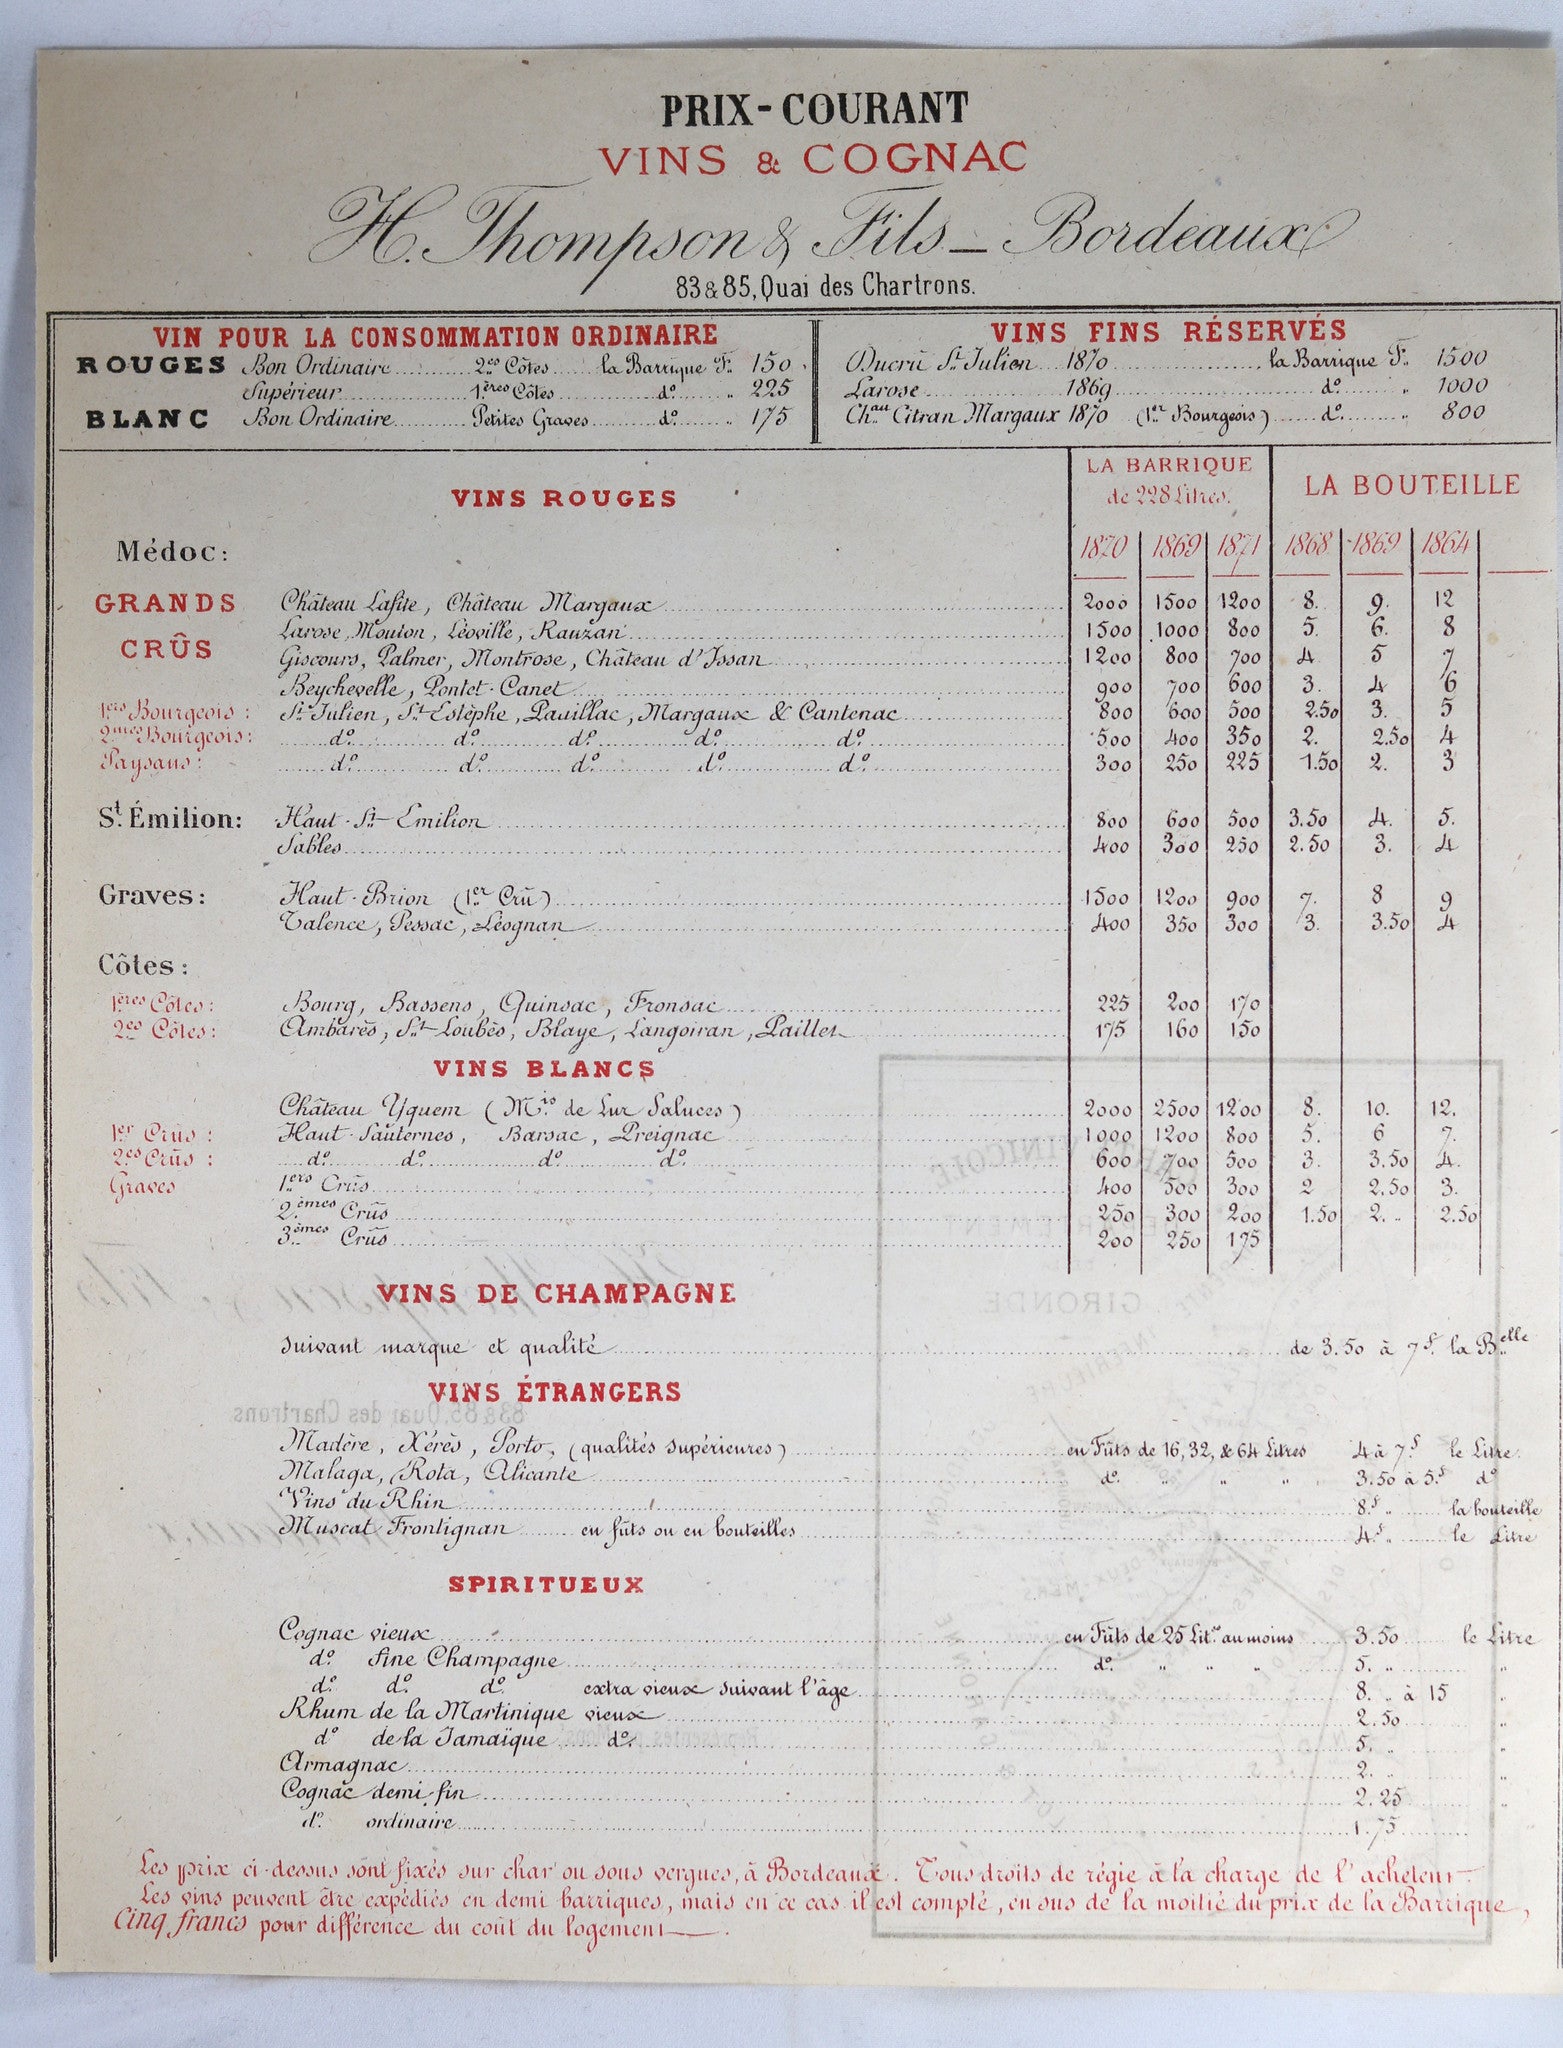 PRIX-COURANT
VINS & COGNAC
H. Thompson & Fils — Bordeaux
83 & 85, Quai des Chartrons.
VIN POUR LA CONSOMMATION ORDINAIRE
ROUGES Bon Ordinaire 2es Côtes la Barrique F. 150
Supérieur 1ères Côtes do. " 225
BLANC Bon Ordinaire Petites Graves do. " 175
VINS FINS RÉSERVÉS
Ducru St Julien 1870 la Barrique F. 1500
Larose 1869 do. " 1000
Chau Citran Margaux 1870 (1er Bourgeois) do. " 800
VINS ROUGES
LA BARRIQUE de 228 Litres. LA BOUTEILLE
1870 1869 1871 1868 1869 1864
Médoc:
GRANDS CRÛS
Château Lafite, Château Margaux 2000 1500 1200 8. 9. 12
Larose, Mouton, Léoville, Rauzan 1500 1000 800 5. 6. 8
Giscours, Palmer, Montrose, Château d'Issan 1200 800 700 4 5 7
Beychevelle, Pontet-Canet 900 700 600 3. 4 6
1ers Bourgeois: St Julien, St Estèphe, Pauillac, Margaux & Cantenac 800 600 500 2.50 3. 5
2mes Bourgeois: do. do. do. do. do. 500 400 350 2. 2.50 4
Paysans: do. do. do. do. do. 300 250 225 1.50 2. 3
St. Émilion: Haut-St-Emilion 800 600 500 3.50 4. 5.
Sables 400 300 250 2.50 3. 4
Graves: Haut-Brion (1er Crû) 1500 1200 900 7. 8 9
Talence, Pessac, Léognan 400 350 300 3. 3.50 4
Côtes:
1ères Côtes: Bourg, Bassens, Quinsac, Fronsac 225 200 170
2es Côtes: Ambarès, St-Loubès, Blaye, Langoiran, Paillet 175 160 150
VINS BLANCS
Château Yquem (Mis de Lur Saluces) 2000 2500 1200 8. 10. 12.
1er Crûs: Haut-Sauternes, Barsac, Preignac 1000 1200 800 5. 6 7.
2es Crûs: do. do. do. do. 600 700 500 3. 3.50 4.
Graves 1ers Crûs 400 500 300 2 2.50 3.
2èmes Crûs 250 300 200 1.50 2. " 2.50
3èmes Crûs 200 250 175
VINS DE CHAMPAGNE
suivant marque et qualité de 3.50 à 7f. la Belle
VINS ÉTRANGERS
Madère, Xérès, Porto, (qualités supérieures) en Fûts de 16, 32, & 64 Litres 4 à 7f le Litre.
Malaga, Rota, Alicante do. " " " 3.50 à 5.f do
Vins du Rhin 8.f " la bouteille
Muscat Frontignan en fûts ou en bouteilles 4.f " le Litre
SPIRITUEUX
Cognac vieux en Fûts de 25 Lit.es au moins 3.50 le Litre
do. Fine Champagne do. " " " " 5. " "
do. do. do. extra vieux suivant l'âge 8. " à 15 "
Rhum de la Martinique vieux 2.50 "
do de la Jamaïque do. 5. " "
Armagnac 2. " "
Cognac demi-fin 2.25 "
do. ordinaire 1.75 "
Les prix ci-dessus sont fixés sur char ou sous vergues, à Bordeaux. Tous droits de régie à la charge de l'acheteur—
Les vins peuvent être expédiés en demi barriques, mais en ce cas il est compté, en sus de la moitié du prix de la Barrique,
Cinq francs pour différence du coût du logement—.